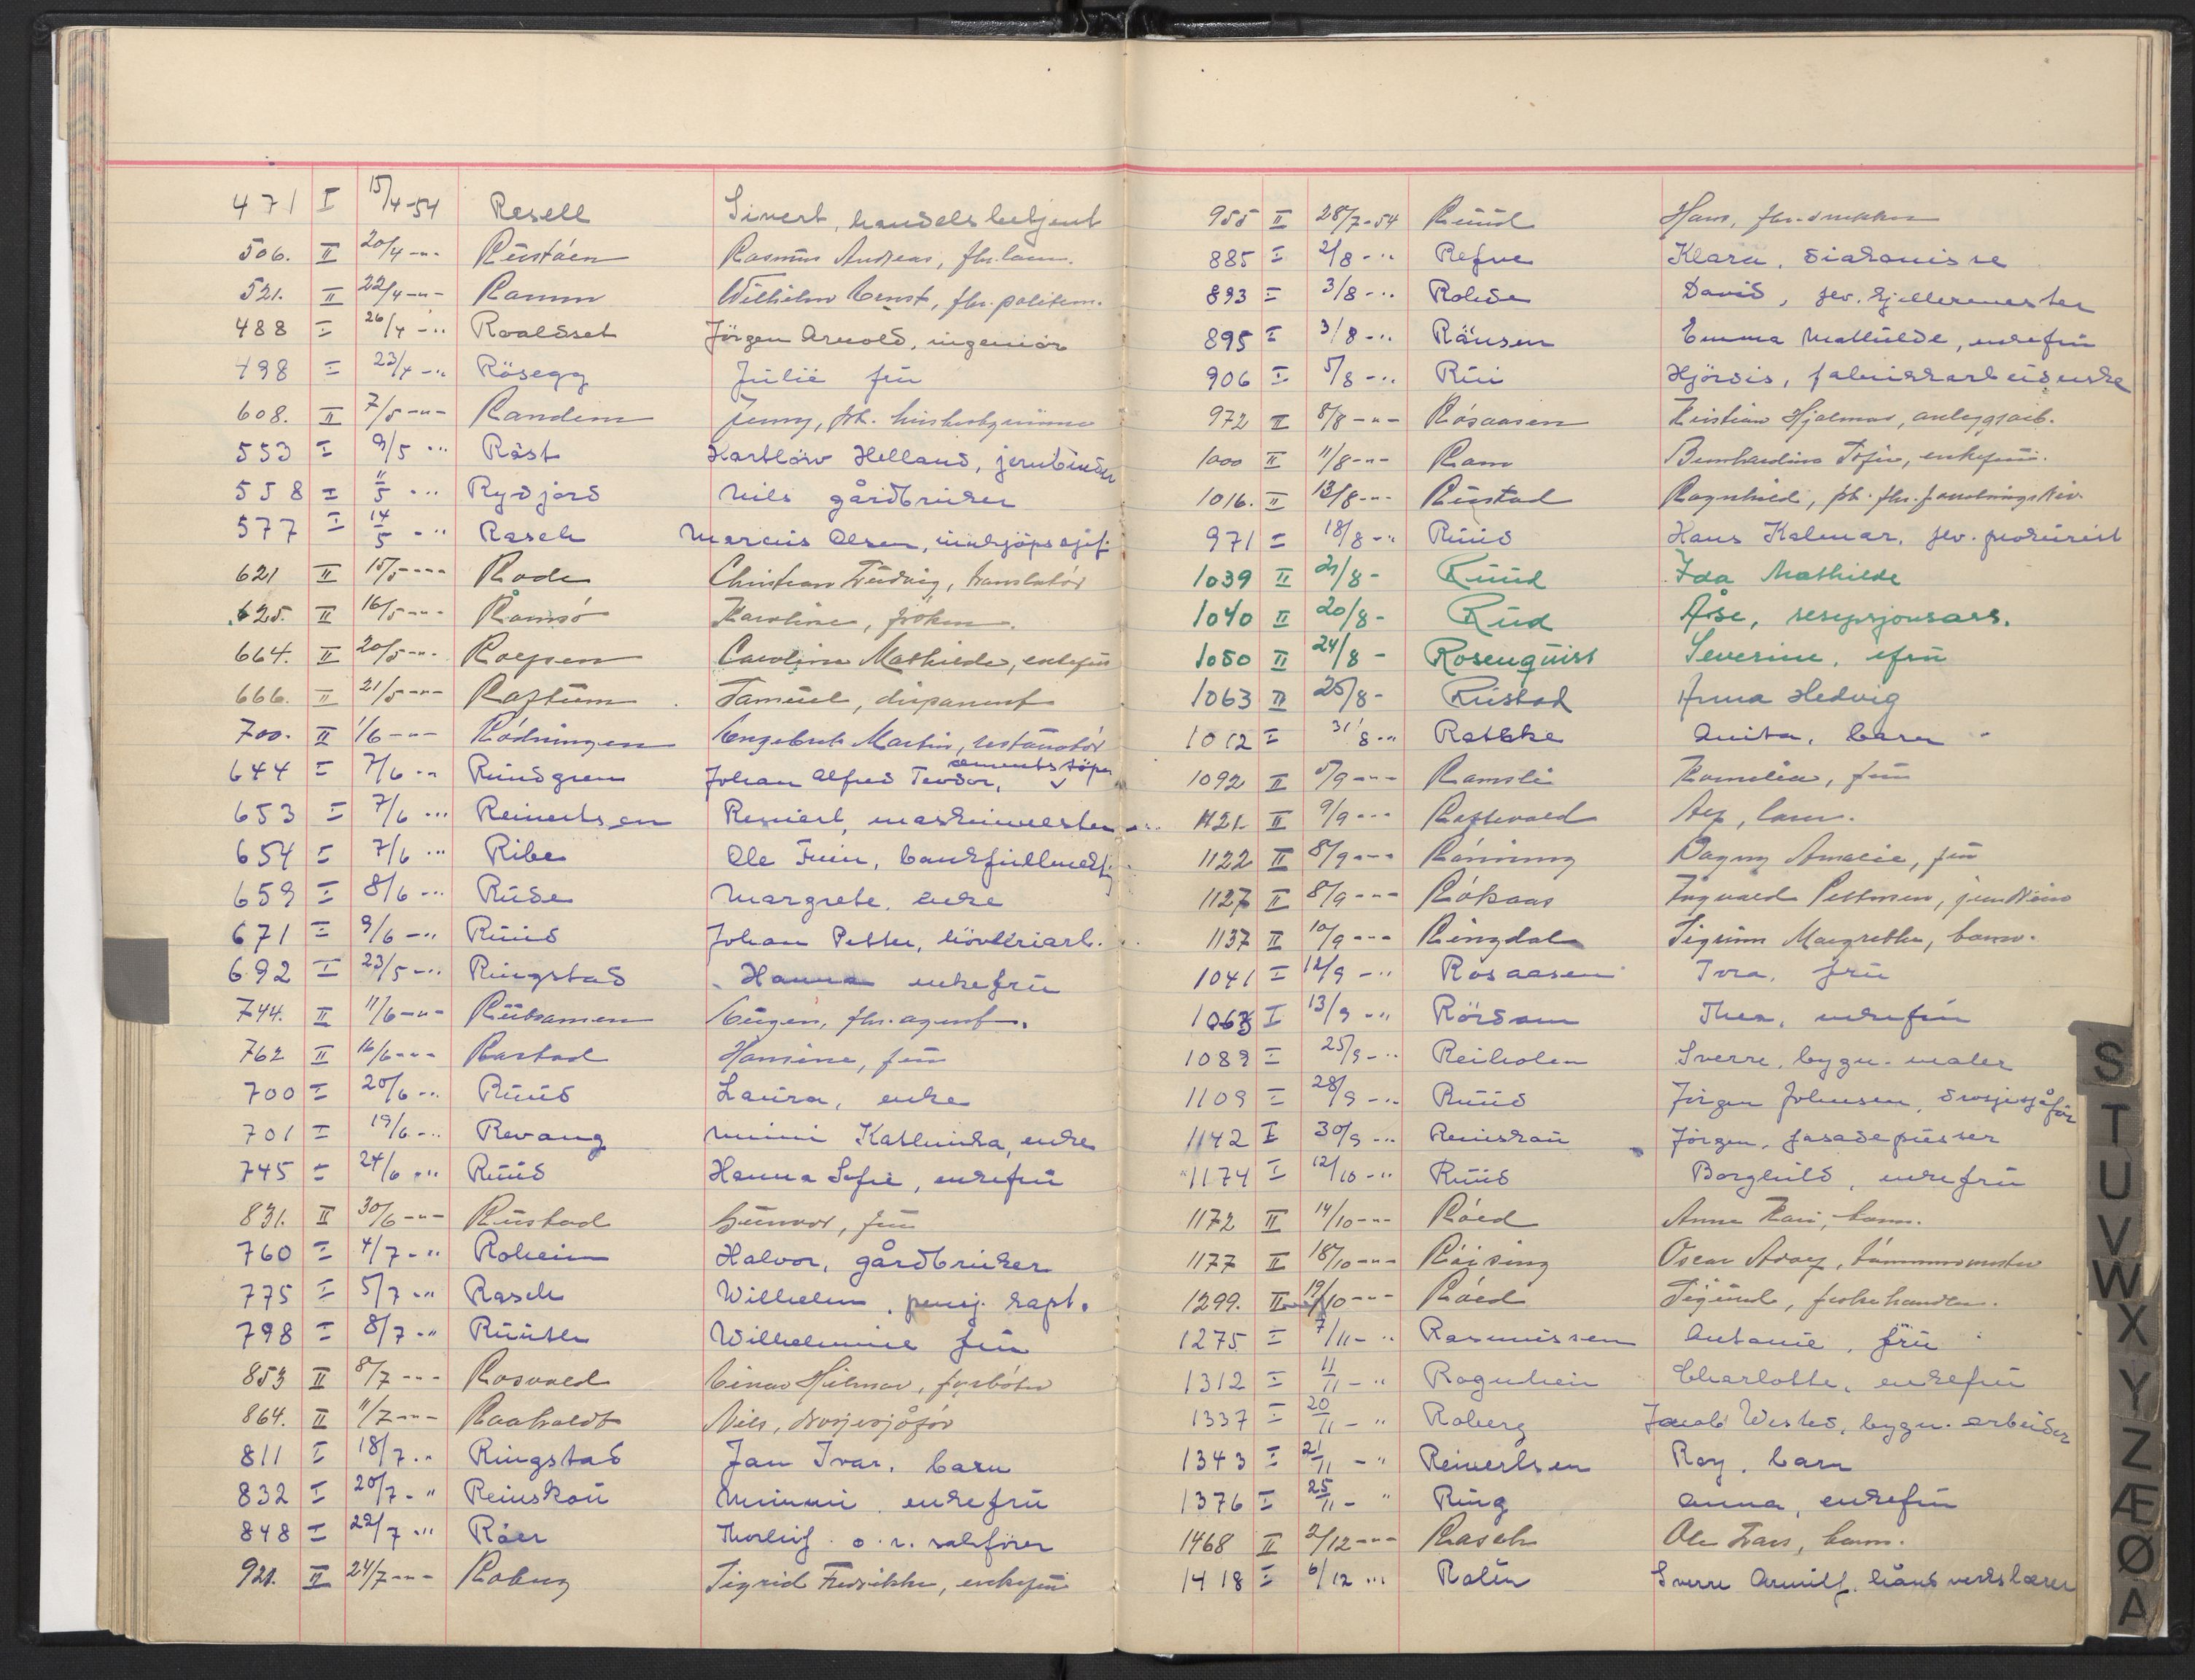 471 I 15/4-54 Resell Sivert, handelsbetjent
506. II 20/4 -"- Ruståen Rasmus Andreas, fhv.
521. II 22/4 -"- Ramm Wilhelm Ernst, fhv. politim.
488 I 26/4 -" Roaldset Jörgen Arnold, ingeniör
498 I 23/4 -" Rösegg Julie frü
608. II 7/5 -"- Randem Jenny, fhv.
553 I 9/5 -" Råst Helland,
558 I 11/5 -" Rydjord Nils gårdbruker
577 I 14/5 -" Rasch Marcus Olsen, innkjöpssjef
621 II 15/5 -"- Rode Christian Ludvig, translatör
625. II 16/5 -"- Ramsö Karoline, fröken.
664. II 20/5 -"- Caroline Mathilde, enkefrü
666. II 21/5 -"- Raftum Samüel, disponent
700. II 1/6 -"- Rödningen Engebret Martin,
644 I 7/6 -" Rundgren Johan Alfred Teodor, sementstöper
653 I 7/6 -" Reinertsen Reniert, maskinmester
654 I 7/6 -" Ribe Ole Finn, bankfullmektig
659 I 8/6 -" Rüde Margrete, enke
671 I 9/6 -" Rüüd Johan Petter, hövleriarb.
692 I 23/5 -" Ringstad Hanna enkefrü
744. II 11/6 -"- Eugen, fhv. agent.
762 II 16/6 -"- Rastad Hansine, frü
700 I 20/6 -" Rüüd Laüra, enke
701 I 19/6 -" Revang Mimi Kathinka, enke
745 I 24/6 -" Rüüd Hanna Sofie, enkefrü
831. II 30/6 -"- Rüstad Günvor, frü
760 I 4/7 -" Roheim Halvor, gårdbruker
775 I 5/7 -" Rasch Wilhelm, pensj. kapt.
798 I 8/7 -" Wilhelmine frü
853 II 8/7 -"- Rosvold Einar Hilmar, fyrböter
864. II 11/7 -"- Raaholdt Nils, drosjesjåför
811 I 18/7 -" Ringstad Jan Ivar, barn
832 I 20/7 -" Reinskoü Mimmi enkefrü
848 I 22/7 -" Råer Thorleif o.r. sakförer
921. II 24/7 -"- Roberg Sigrid Fredrikke, enkefrü
955 II 28/7-54 Rüüd Hans, fhv. snekker
885 I 2/8 -" Refne Klara, diakonisse
893 I 3/8 -" Rohde David, fhv. kjellermester
895 I 3/8 -" Emma Mathilde, enkefrü
906 I 5/8 -" Rüi Hjördis, fabrikkarbeiderske
972 II 8/8 -"- Rösaasen Kristian Hjalmar, anleggsarb.
1000 II 11/8 -"- Ram Bernhardine enkefrü.
1016. II 13/8 -"- Rüstad Ragnhild,
971 I 18/8 -" Rüüd Hans Kalmar, fhv. prokurist
1039 II 21/8 - Rüüd Ida Mathilde
1040 II 20/8 - Rüd Åse, resepsjonsass.
1050 II 24/8 - Rosenqüist Severine, efrü
1063 II 25/8 - Rüstad Anna Hedvig
1012 I 31/8 -" Rathke Anita, barn
1092 II 5/9 -"- Ramsli Kornelia, frü
1121. II 9/9 -"- Raftevold Alf, barn.
1122 II 8/9 -"- Rönning Dagny Amalie, frü
1127 II 8/9 -"- Röhaas Ingvald Pettersen,
1137 II 10/9 -"- Ringdal Sigrunn Margrethe, barn.
1041 I 12/9 -" Rosaasen Ivra, frü
1063 I 13/9 -" Rördam Thea, enkefrü
1089 I 25/9 -" Reiholen Sverre, bygn. maler
1109 I 28/9 -" Rüüd Jörgen Johnsen, drosjesjåför
1142 I 30/9 -" Reinskaü Jörgen, fasadepüsser
1174 I 12/10 -" Rüüd Borghild, enkefrü
1172 II 14/10 -"- Röed Anne Kari, barn.
1177 II 18/10 -"- Röising Oscar Adolf, tömmermester
1299. II 19/10 -"- Röed Sigurd, fiskehandler.
1275 I 7/11 -" Rasmussen Antonie, frü
1312 I 11/11 -" Charlotte, enkefrü
1337 I 20/11 -" Roberg Jacob Wisted, bygn. arbeider
1343 I 21/11 -" Reinertsen Roy, barn
1376 I 25/11 -" Ring Anna, enkefrü
1468 II 2/12 -"- Rasch Ole Lars, barn.
1418 I 6/12 -" Rolin Sverre Arnulf, håndverkslærer
S
T
U
V
W
X
Y
Z
Æ
Ø
A